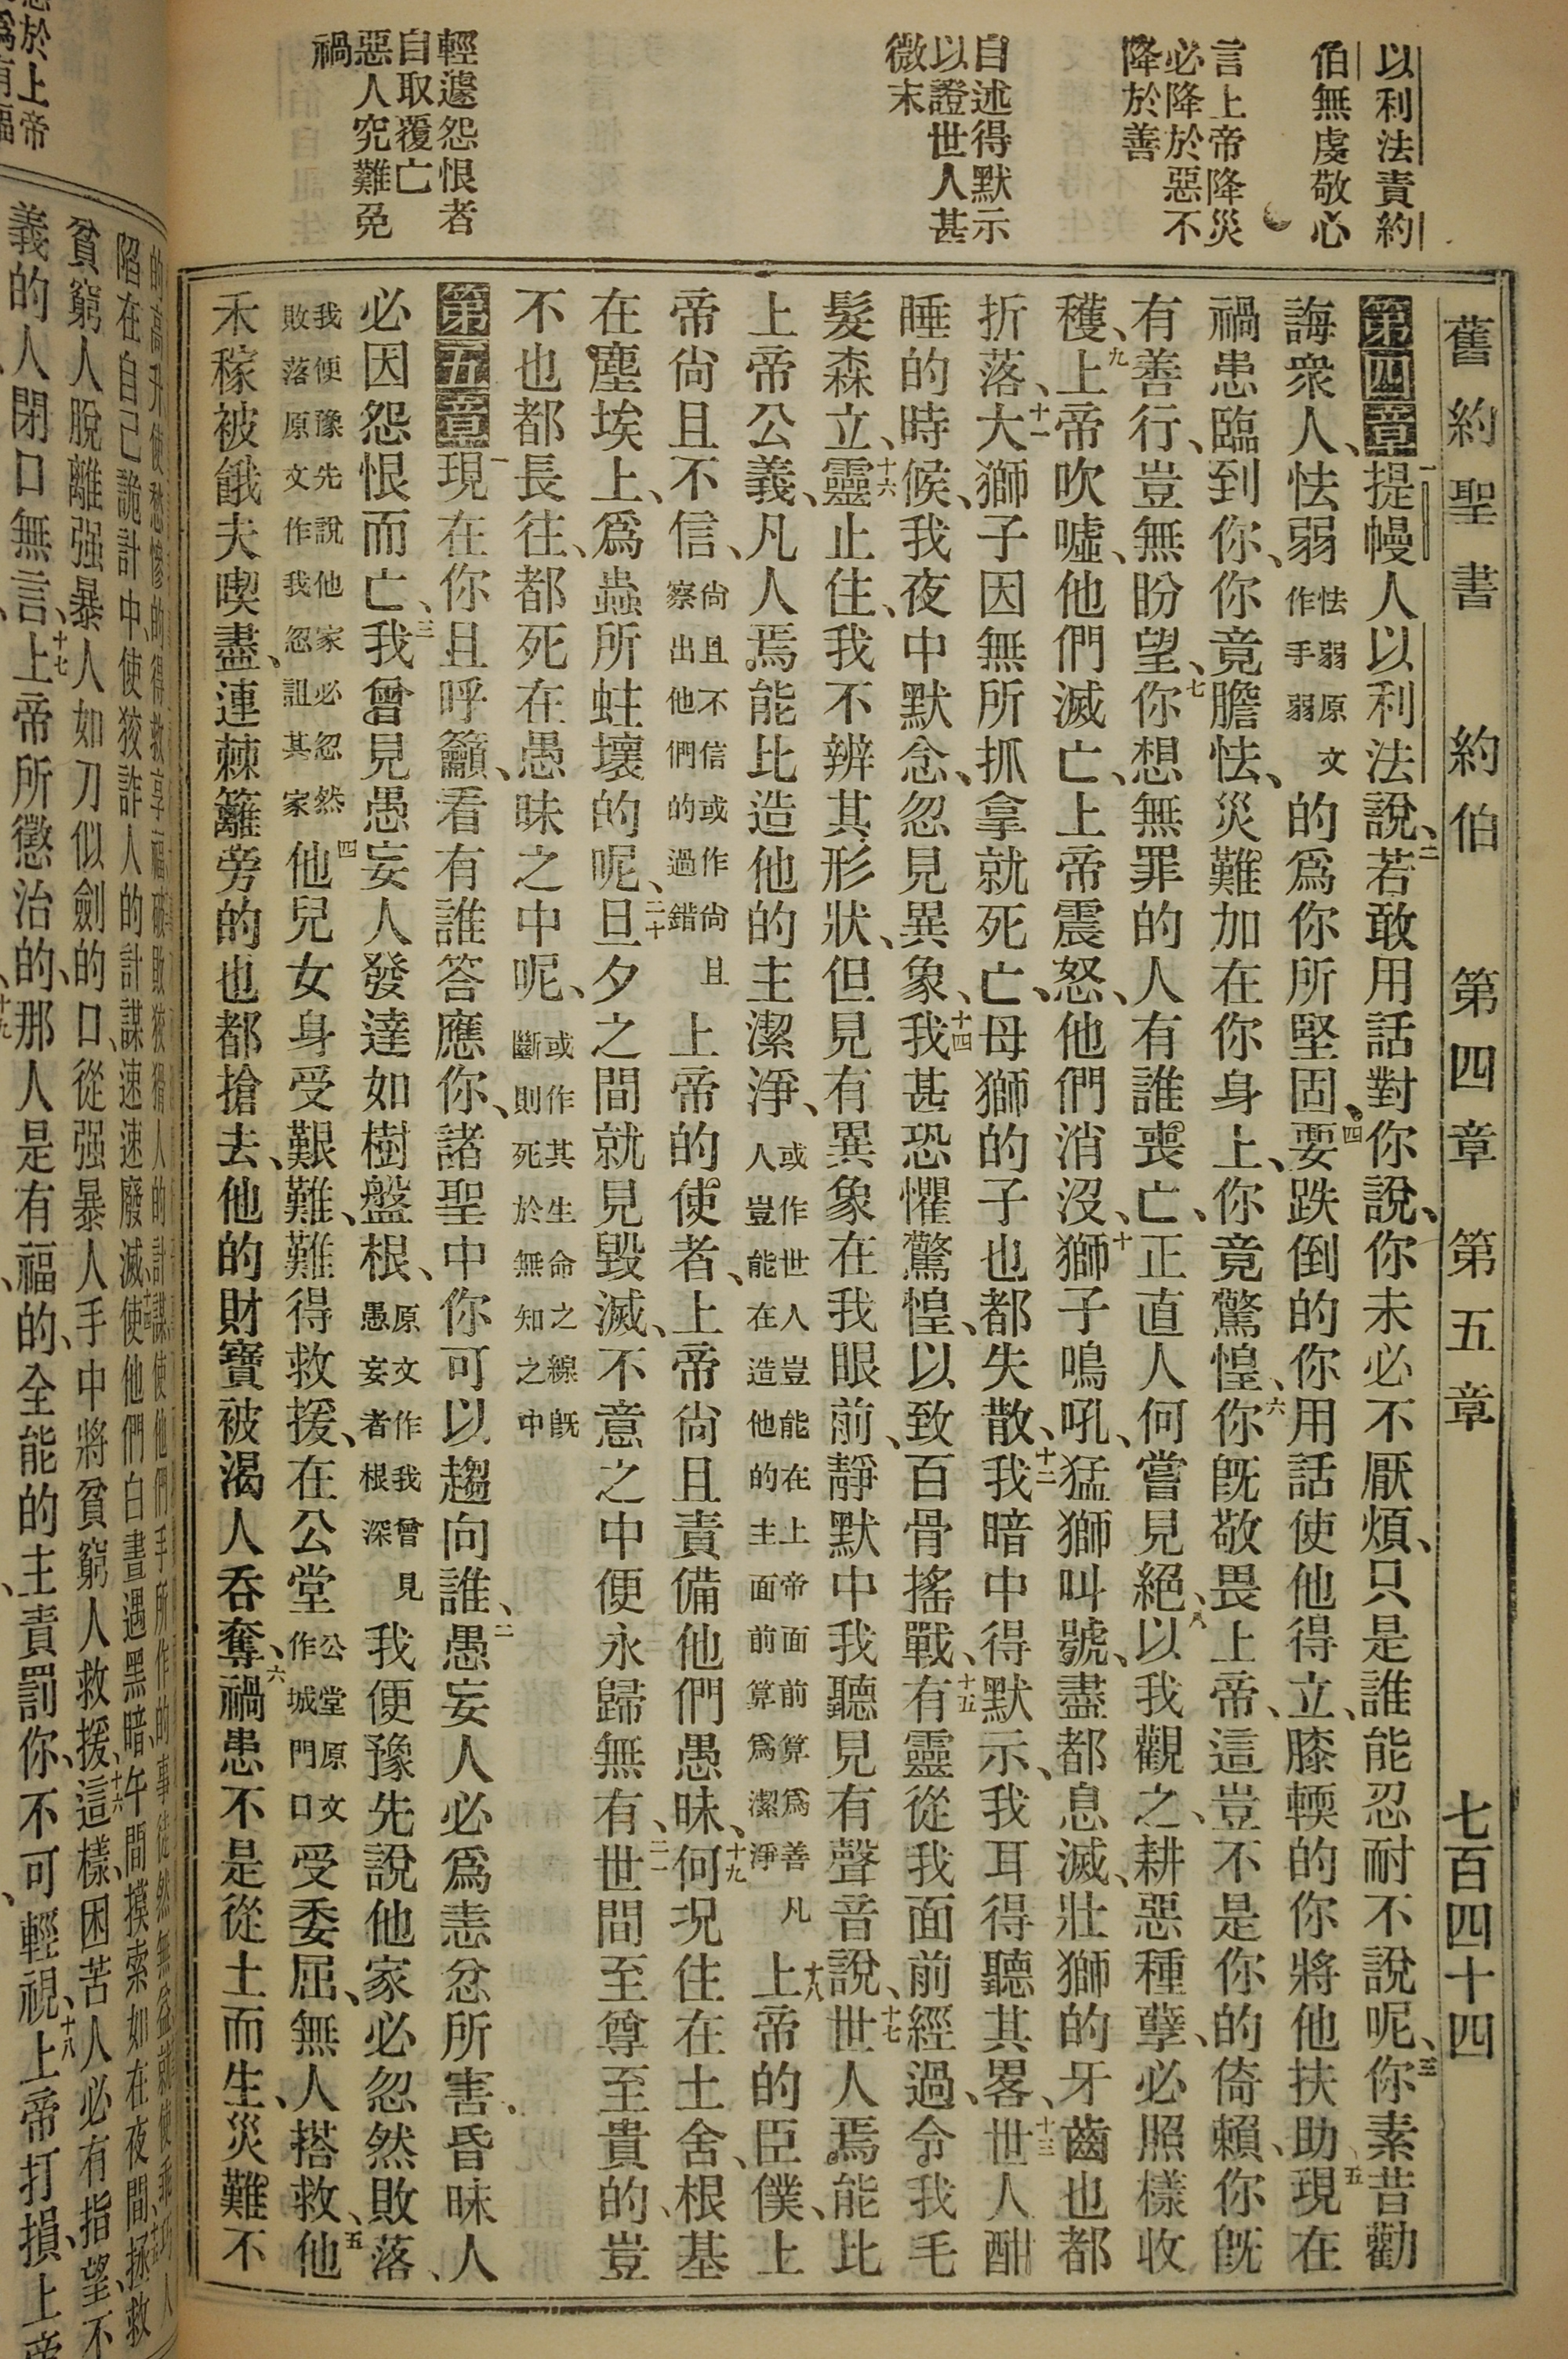 以利法責約
伯無虔敬心
言上帝降災
必降於惡不
降於善
自述得默示
以證世人甚
微末
輕遽怨恨者
自取覆亡
惡人究難免
禍
舊約聖書 約伯 第四章 第五章 七百四十四
第四章 一提幔人以利法說、二若敢用話對你說、你未必不厭煩、只是誰能忍耐不說呢、三你素昔勸
誨衆人、怯弱 怯弱原文作手弱 的爲你所堅固、四要跌倒的你用話使他得立、膝輭的你將他扶助、五現在
禍患臨到你、你竟膽怯、災難加在你身上、你竟驚惶、六你旣敬畏上帝、這豈不是你的倚賴、你旣
有善行、豈無盼望、七你想無罪的人有誰喪亡、正直人何嘗見絕、八以我觀之、耕惡種孽、必照樣收
穫、九上帝吹噓、他們滅亡、上帝震怒、他們消沒、十獅子鳴吼、猛獅叫號、盡都息滅、壯獅的牙齒也都
折落、十一大獅子因無所抓拿就死亡、母獅的子也都失散、十二我暗中得默示、我耳得聽其畧、十三世人酣
睡的時候、我夜中默念、忽見異象、十四我甚恐懼驚惶、以致百骨搖戰、十五有靈從我面前經過、令我毛
髮森立、十六靈止住、我不辨其形狀、但見有異象在我眼前、靜默中我聽見有聲音說、十七世人焉能比
上帝公義、凡人焉能比造他的主潔淨、 或作世人豈能在上帝面前算爲善凡人豈能在造他的主面前算爲潔淨 十八上帝的臣僕、上
帝尙且不信、 尙且不信或作尙且察出他們的過錯 上帝的使者、上帝尙且責備他們愚昧、十九何況住在土舍、根基
在塵埃上、爲蟲所蛀壞的呢、二十旦夕之間就見毀滅、不意之中便永歸無有、二一世間至尊至貴的、豈
不也都長往、都死在愚昧之中呢、 或作其生命之線旣斷則死於無知之中
第五章 一現在你且呼籲、看有誰答應你、諸聖中你可以趨向誰、二愚妄人必爲恚忿所害、昏昧人
必因怨恨而亡、三我曾見愚妄人發達如樹盤根、 原文作我曾見愚妄者根深 我便豫先說他家必忽然敗落、
我便豫先說他家必忽然敗落原文作我忽詛其家 四他兒女身受艱難、難得救援、在公堂 公堂原文作城門口 受委屈、無人搭救、五他
禾稼被餓夫喫盡、連棘籬旁的也都搶去、他的財寶被渴人吞奪、六禍患不是從土而生、災難不
貧窮人脫離强暴人如刀似劍的口、從强暴人手中將貧窮人救援、十六這樣、困苦人必有指望、不
義的人閉口無言、十七上帝所懲治的那人是有福的、全能的主責罰你、你不可輕視、十八上帝打損、上帝